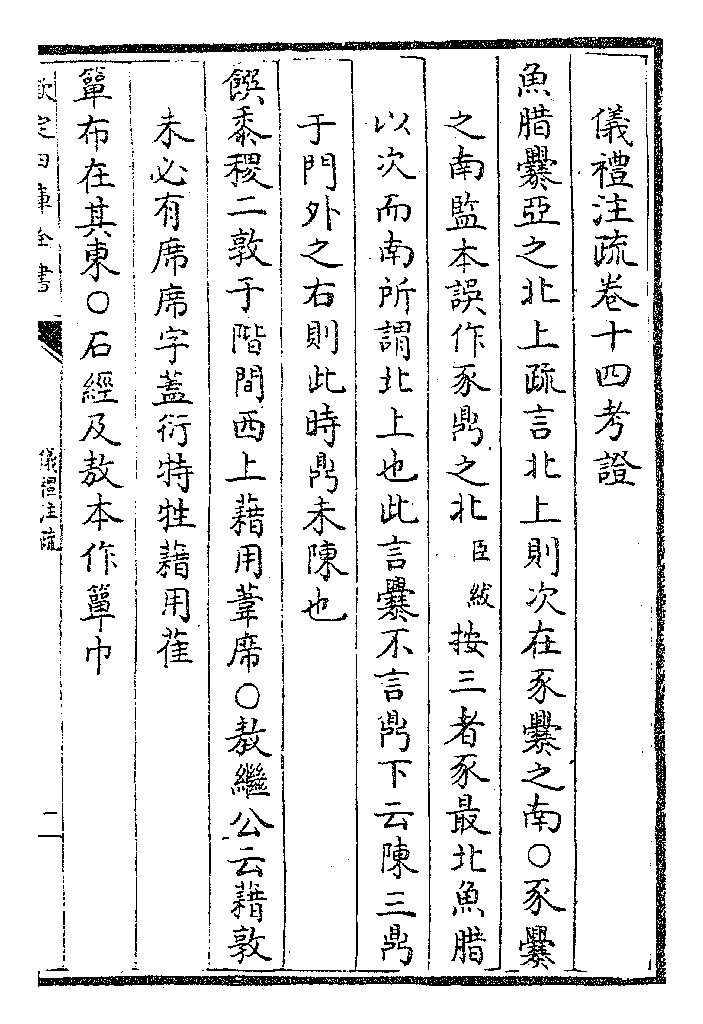 儀禮注疏卷十四考證
魚腊爨亞之北上疏言北上則次在豕爨之南○豕爨
之南監本誤作豕鼎之北臣紱按三者豕最北魚腊
以次而南所謂北上也此言爨不言鼎下云陳三鼎
于門外之右則此時鼎未陳也
饌黍稷二敦于階間西上藉用葦席○敖繼公云藉敦
未必有席席字蓋衍特牲藉用萑
簞布在其東○石經及敖本作簞巾
欽定四庫全書
儀禮注疏
二